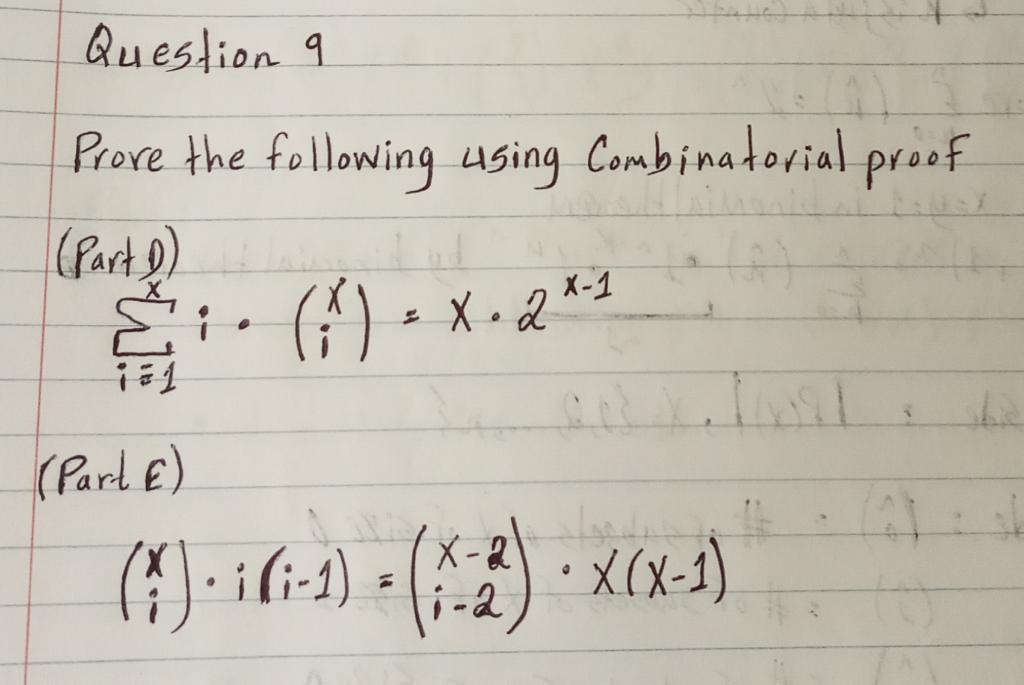 Question 9
Prove the following using Combinatorial proof
(Part D)
x
∑ i · (x i) = x · 2^(x-1)
i=1
(Part E)
(x i) · i(i-1) = (x-2 i-2) · x(x-1)